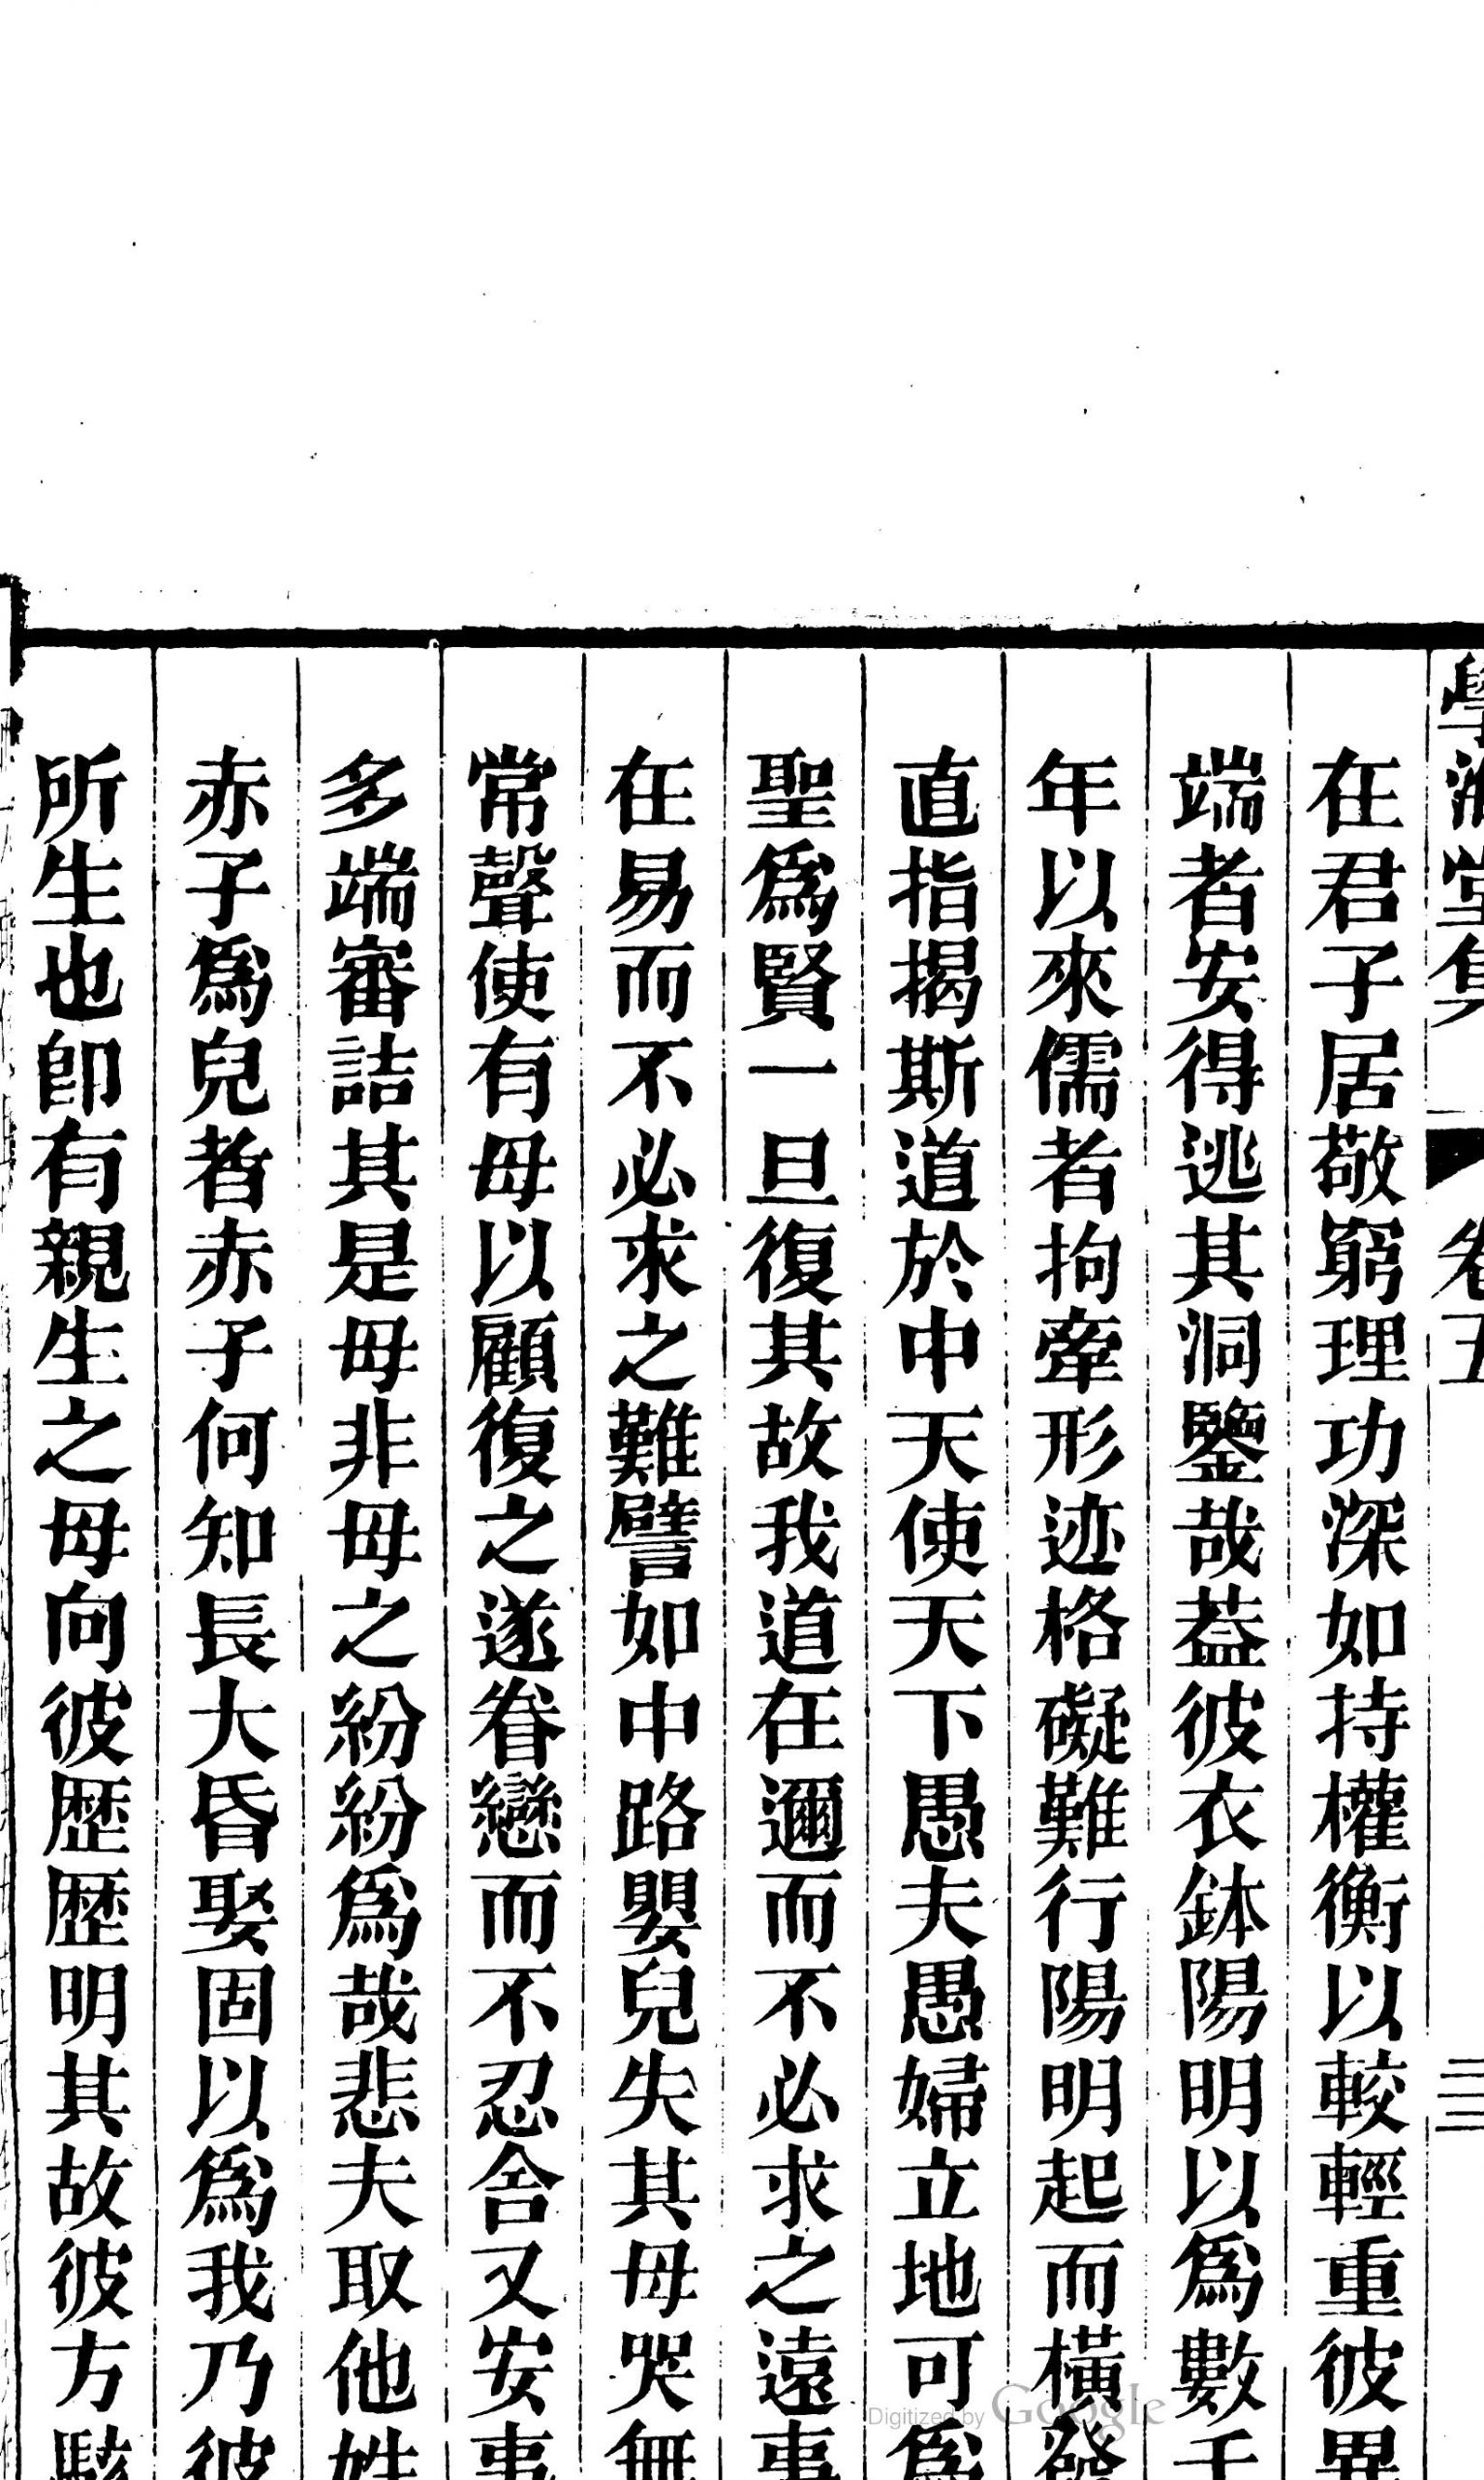 學海堂集 卷五 三
在君子居敬窮理功深如持權衡以較輕重彼異
端者安得逃其洞鑒哉葢彼衣鉢陽明以爲數千
年以來儒者拘牽形迹格礙難行陽明起而橫發
直指揭斯道於中天使天下愚夫愚婦立地可爲
聖爲賢一旦復其故我道在邇而不必求之遠事
在易而不必求之難譬如中路嬰兒失其母哭無
常聲使有母以顧復之遂眷戀而不忍舍又安事
多端審詰其是母非母之紛紛爲哉悲夫取他姓
赤子爲兒者赤子何知長大昏娶固以爲我乃彼
所生也卽有親生之母向彼歷歷明其故彼方駭
Digitized by Google